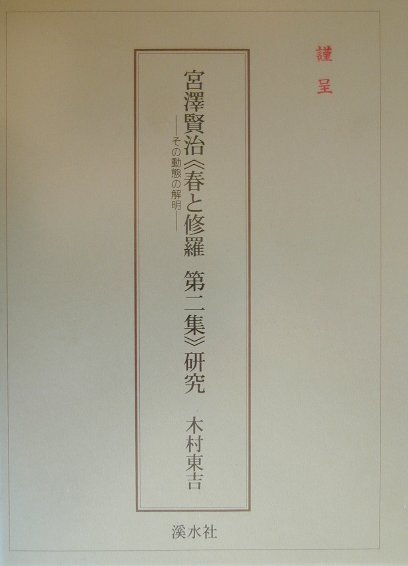 謹呈
宮澤賢治《春と修羅 第二集》研究
――その動態の解明――
木村東吉
溪水社